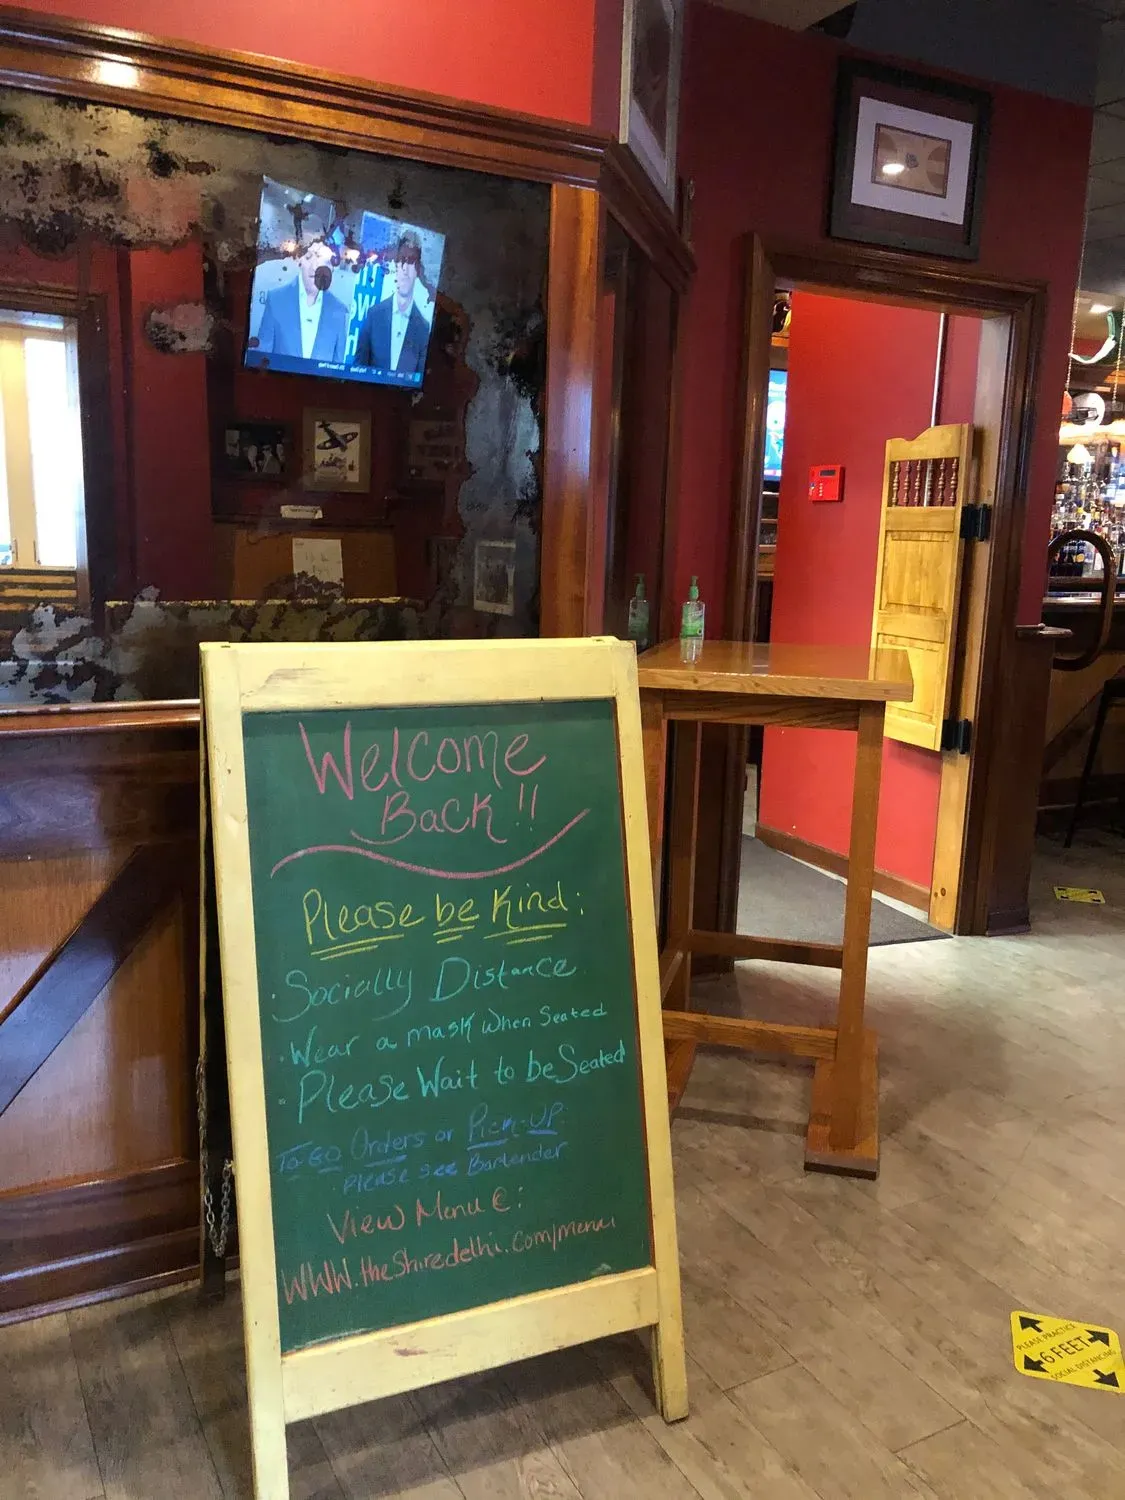 Welcome
Back!!
Please be Kind:
· Socially Distance
· Wear a mask when Seated
· Please Wait to be Seated
To-Go Orders or Pick-UP:
Please see Bartender
View Menu @:
WWW.theshiredelhi.com/menu
PLEASE PRACTICE
6 FEET
SOCIAL DISTANCING